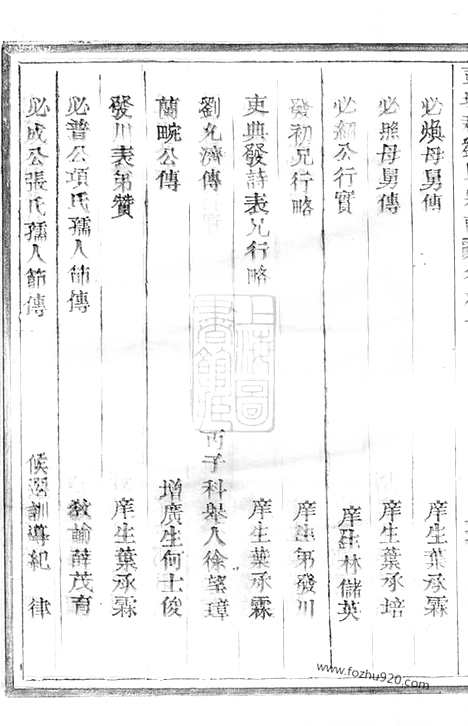 必煥母舅傳 庠生葉承霖
必照母舅傳 庠生葉承培
必紹公行實 庠生林儲英
發初兄行略 庠生弟發川
吏典發詩表兄行略 庠生葉承霖
劉允濟傳 丙子科舉人徐望璋
蘭畹公傳 增廣生何士俊
發川表弟贊 庠生葉承霖
必普公項氏孺人節傳 教諭薛茂育
必成公張氏孺人節傳 候選訓導紀律
上海圖書館藏
www.fozhu920.com